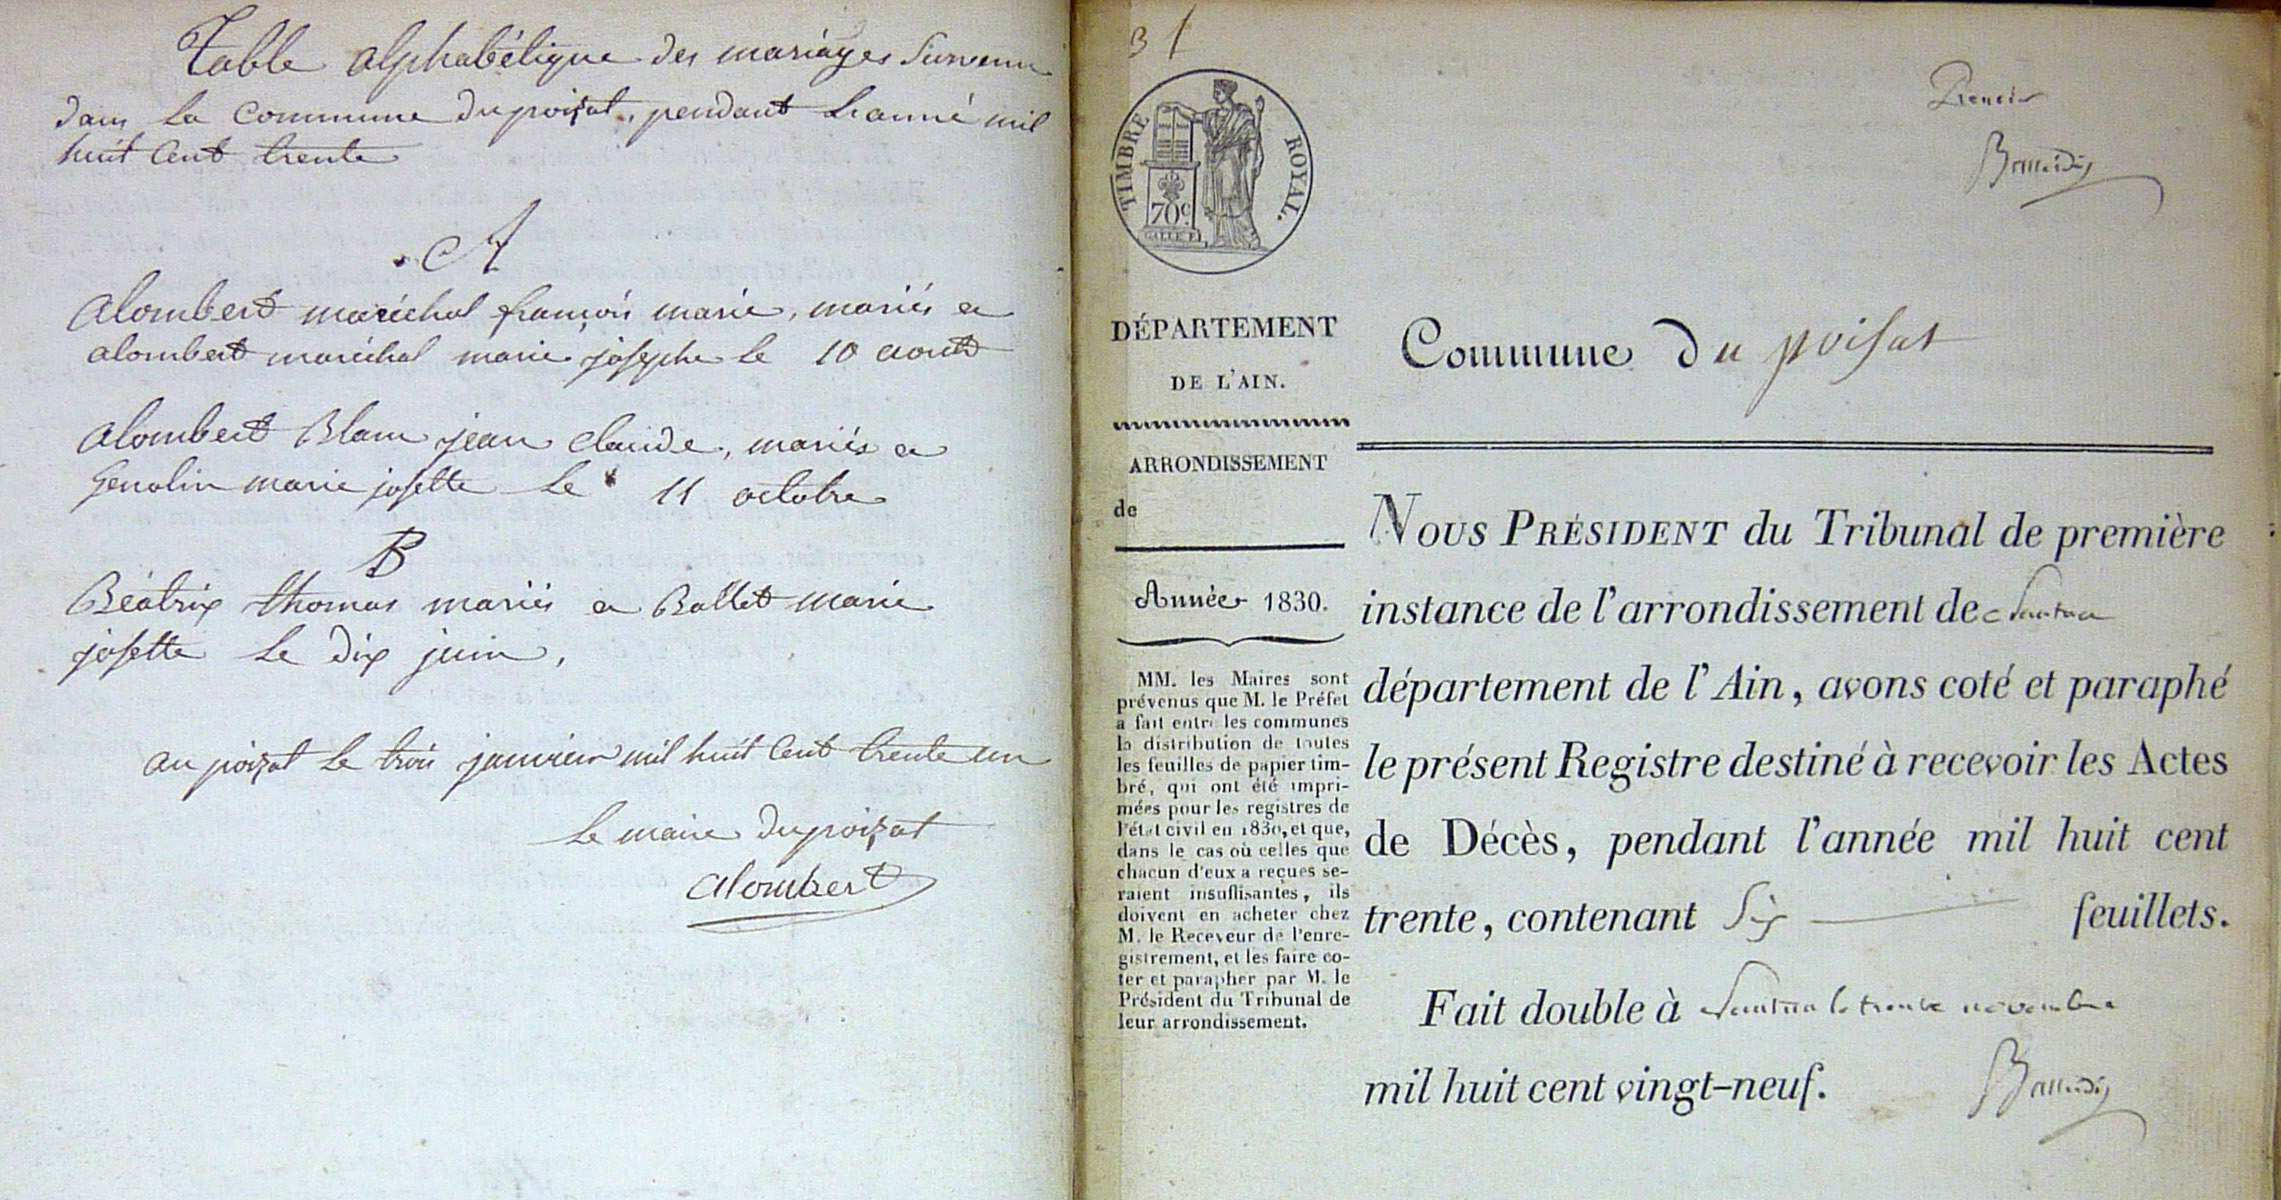 Table alphabétique des mariages Survenu
dans la Commune du poizat, pendant L'année mil
huit Cent trente
A
Alombert maréchal françois marie, mariés a
alombert maréchal marie josephe le 10 aoutt
Alombert Blanc jean Claude, mariés a
Genolin marie josette le 11 octobre
B
Béatrix thomas mariés a Ballet marie
josette le dix juin,
au poizat le trois janvier mil huit Cent trente un
Le maire du poizat
alombert
TIMBRE ROYAL.
70c.
DÉPARTEMENT
DE L'AIN.
ARRONDISSEMENT
de
Année 1830.
MM. les Maires sont
prévenus que M. le Préfet
a fait entre les communes
la distribution de toutes
les feuilles de papier tim-
bré, qui ont été impri-
mées pour les registres de
l'état civil en 1830, et que,
dans le cas où celles que
chacun d'eux a reçues se-
raient insuffisantes, ils
doivent en acheter chez
M. le Receveur de l'enre-
gistrement, et les faire co-
ter et parapher par M. le
Président du Tribunal de
leur arrondissement.
Premier
Commune Du poisat
NOUS PRÉSIDENT du Tribunal de première
instance de l'arrondissement de Nantua
département de l'Ain, avons coté et paraphé
le présent Registre destiné à recevoir les Actes
de Décès, pendant l'année mil huit cent
trente, contenant Six feuillets.
Fait double à Nantua le trente novembre
mil huit cent vingt-neuf.